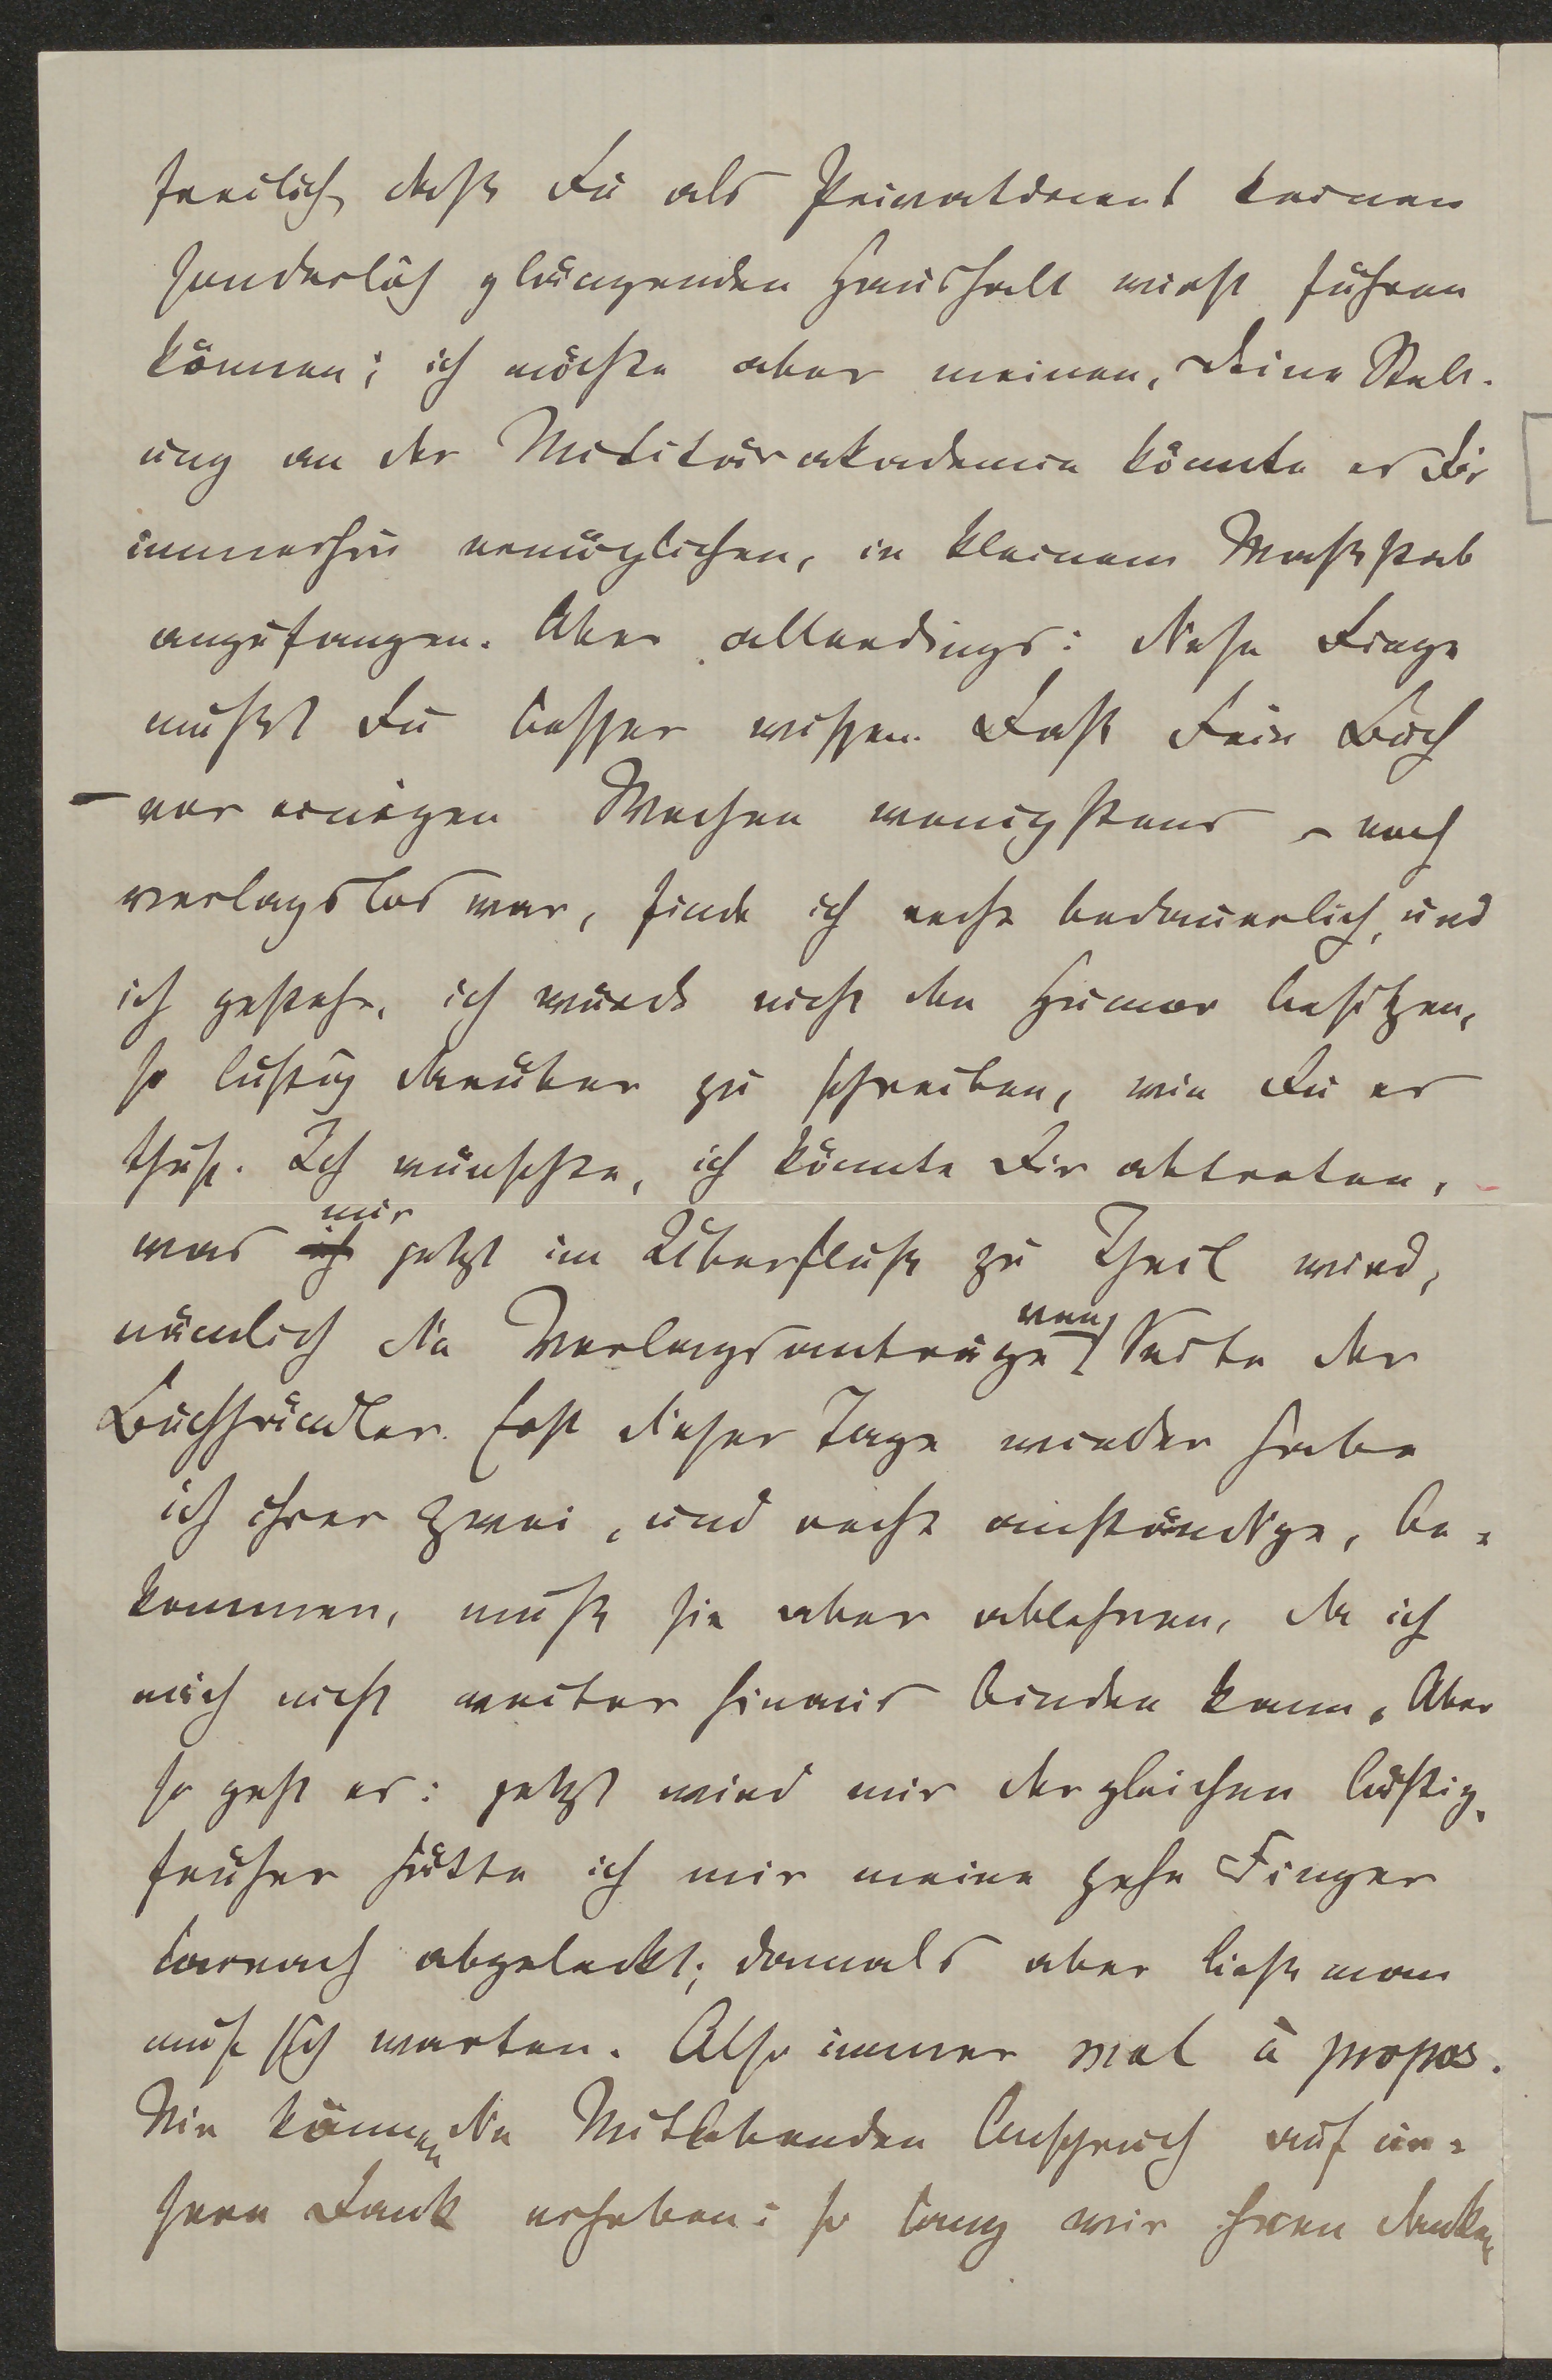 freilich, daß Du als Privatdocent keinen
sonderlich glänzenden Haushalt wirst führen
können; ich möchte aber meinen, Deine Stell-
ung an der Militärakademie könnte es Dir
immerhin ermöglichen, in kleinem Maßstab
anzufangen. Aber allerdings: diese Dinge
mußt Du besser wissen. Daß Dein Buch
– vor einigen Wochen wenigstens – noch
verlagslos war, finde ich recht bedauerlich, und
ich gestehe, ich würde nicht den Humor besitzen,
so lustig darüber zu schreiben, wie Du es
thust. Ich wünschte, ich könnte Dir abtreten,
was ich mir jetzt im Überfluß zu Theil wird,
nämlich die Verlagsanträge von Seite der
Buchhändler. Erst dieser Tage wieder habe
ich ihrer zwei, und recht anständige, be-
kommen, muß sie aber ablehnen, da ich
mich nicht weiter hinaus binden kann. Aber
so geht es: jetzt wird mir dergleichen lästig,
früher hätte ich mir meine zehn Finger
darnach abgeleckt; damals aber ließ man
auf sich warten. Also immer mal à propos.
Nie können die Mitlebenden Anspruch auf un-
sern Dank erheben: so lang wir ihnen danken